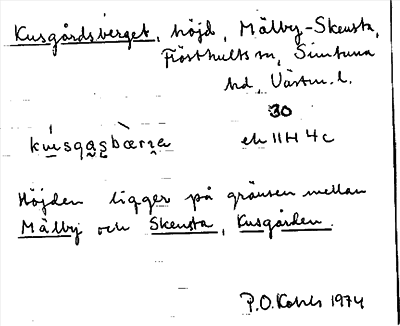 Kusgårdsberget, höjd, Mälby-Skensta,
Frösthults sn, Simtuna
hd, Västm. l.
30
ek 11H 4c
Höjden ligger på gränsen mellan
Mälby och Skensta, Kusgården.
P.O. 1974